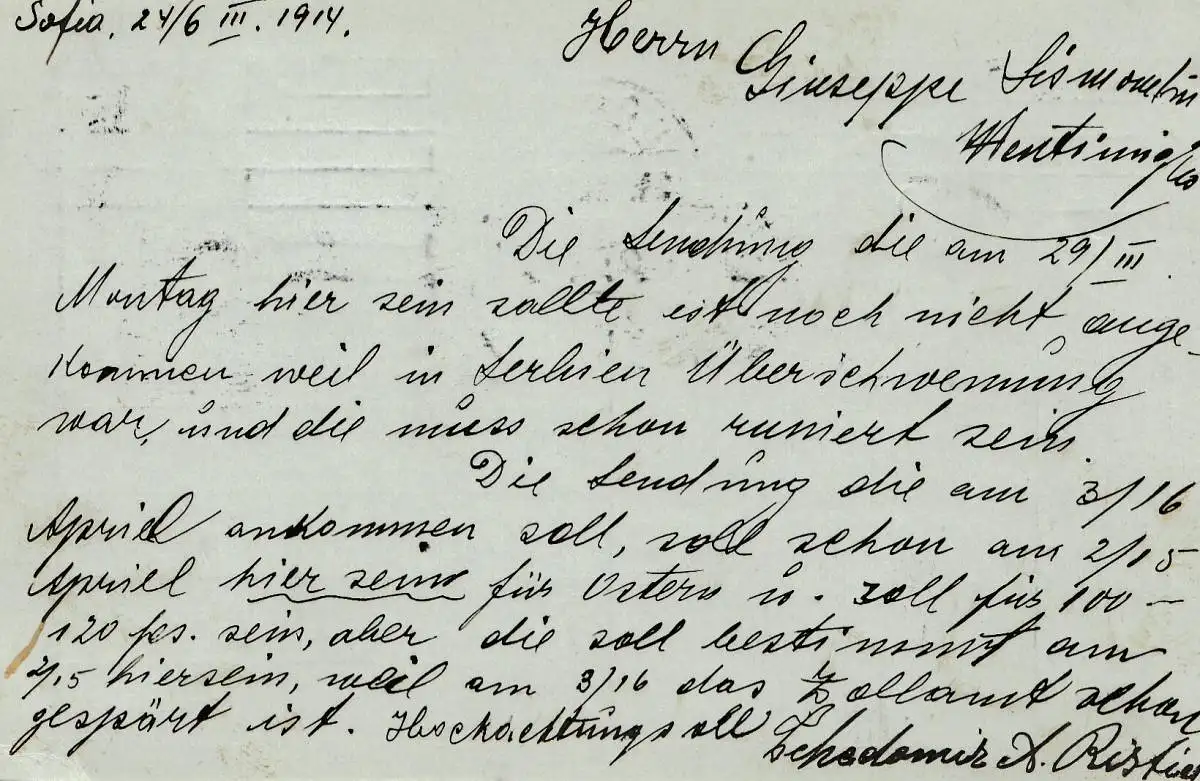 Sofia, 24/6 III. 1914.
Herrn
Giuseppe
Wentimiglia
Die Sendung die am 29/III.
Montag hier sein sollte ist noch nicht ange-
kommen weil in Serbien Überschwemung
war, und die muss schon runiert sein.
Die Sendung die am 3/16
Apriel ankommen soll, soll schon am 2/15
Apriel hier sein für Ostern u. soll für 100-
120 fcs. sein, aber die soll bestimmt am
2/15 hiersein, weil am 3/16 das Zollamt schon
gespärt ist. Hochachtungsvoll
Tchedomir A. Ristić